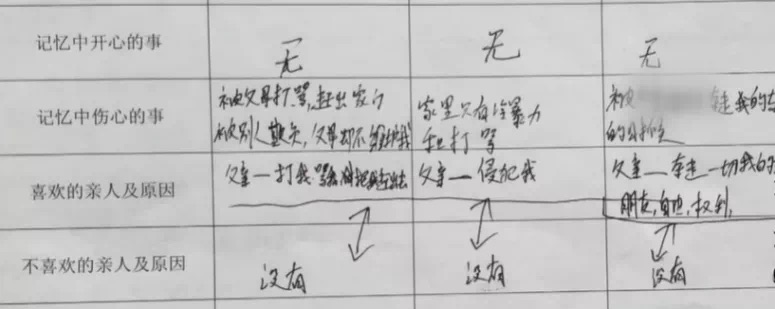 记忆中开心的事
无
无
无
记忆中伤心的事
被父母打骂,赶出家门
被别人欺负,父母却不维护我
家里只有冷暴力
和打骂
被 走我的
的
喜欢的亲人及原因
父亲—打我 骂我 赶出去
父亲—侵犯我
父亲—夺走一切我的
朋友,自由,权利,
不喜欢的亲人及原因
没有
没有
没有